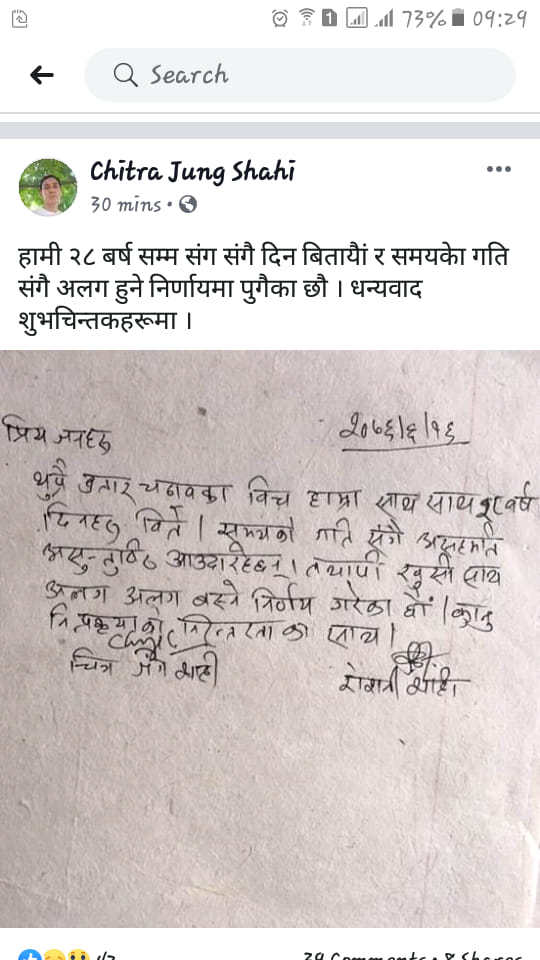 73% 09:29
Search
Chitra Jung Shahi
30 mins
हामी २८ बर्ष सम्म संग संगै दिन बितायैां र समयकेा गति
संगै अलग हुने निर्णायमा पुगैका छौ । धन्यवाद
शुभचिन्तकहरूमा ।
२०७६/६/१६
प्रिय जनहरु
थुप्रै उतार चढावका विच हाम्रा साथ साथ २८ वर्ष
दिनहरु विते । समयको गति संगै असहमति
असन्तुष्टि आउदारहेछन् । तथापी खुसी साथ
अलग अलग बस्ने निर्णय गरेका छौं । कानुनी
प्रकृयाको निरन्तरता का साथ ।
चित्र जंग शाही
रोशनी शाही
39 Comments • 8 Shares